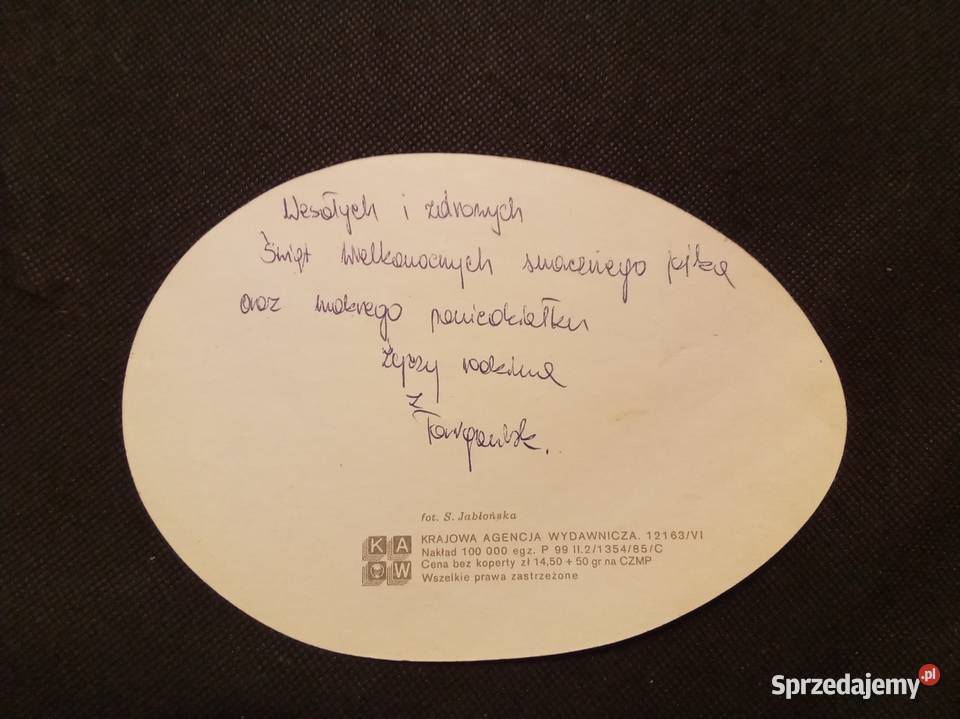 Wesołych i zdrowych
Świąt Wielkanocnych smacznego jajka
oraz mokrego poniedziałku
życzy rodzina
z
fot. S. Jabłońska
KAW
KRAJOWA AGENCJA WYDAWNICZA. 12163/VI
Nakład 100 000 egz. P 99 II.2/1354/85/C
Cena bez koperty zł 14,50 + 50 gr na CZMP
Wszelkie prawa zastrzeżone
Sprzedajemy.pl